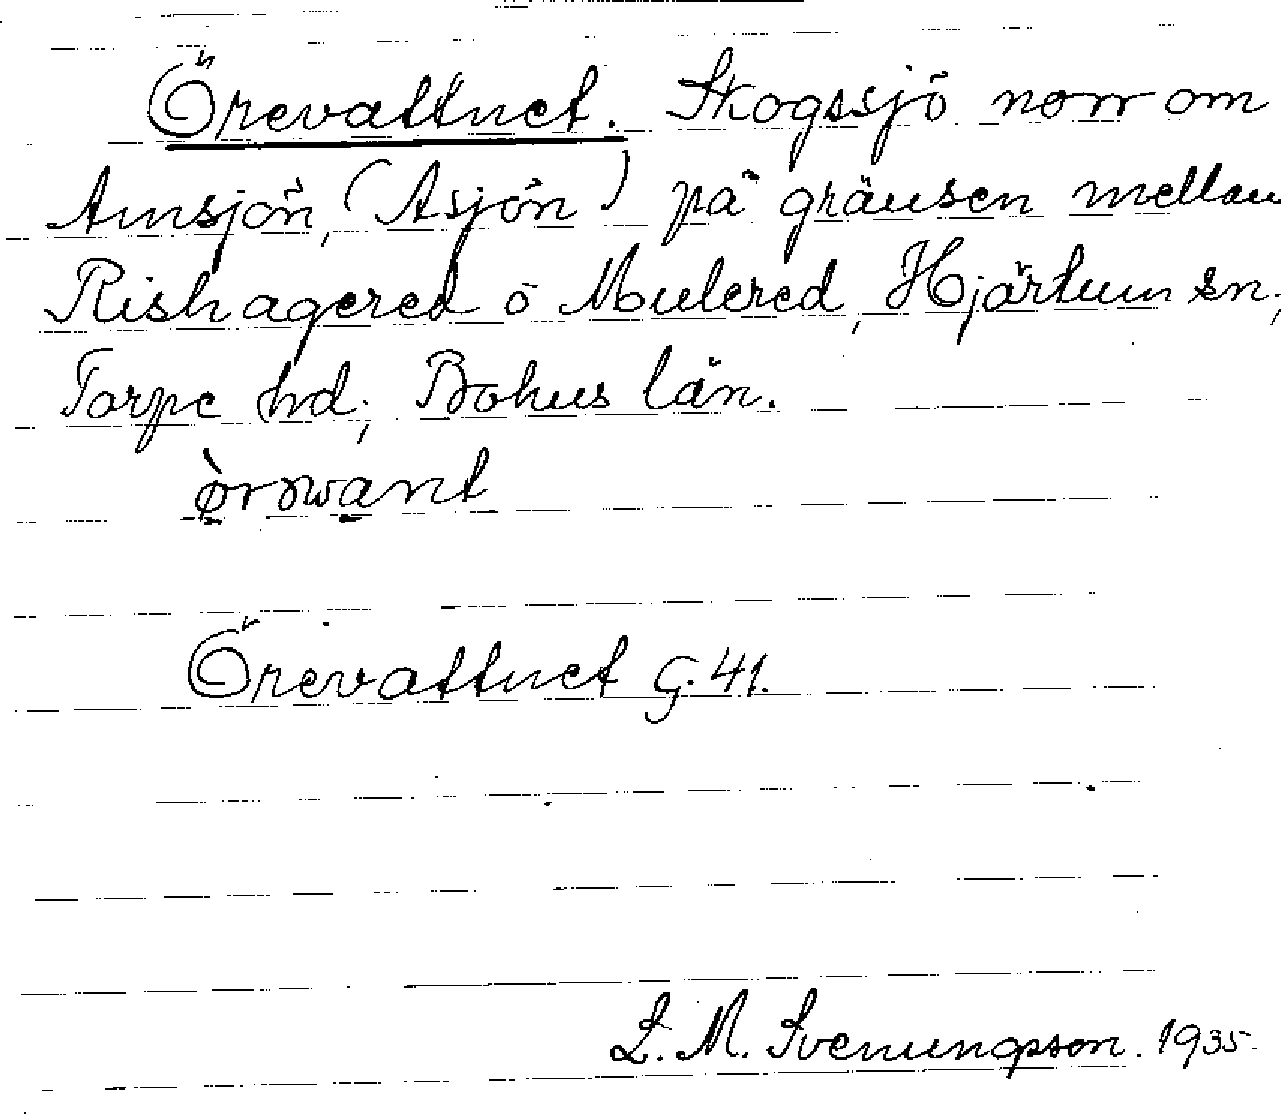 Örevattnet. Skogssjö norr om
Amsjön, (Asjön) på gränsen mellan
Rishagered o Mulered, Hjärtum sn,
Torpe hd, Bohus län.
Örevattnet G. 41.
L. M. Svenungsson. 1935